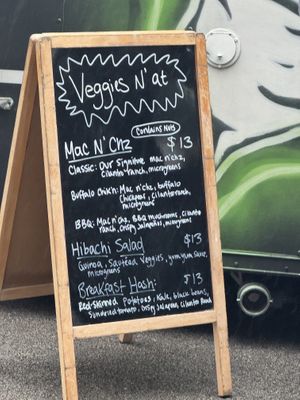 Veggies N' at
Contains Nuts
Mac N' Chz $13
Classic: Our Signature mac n' chz,
cilantro ranch, microgreens
Buffalo Chik'n: Mac n' chz, buffalo
chickpeas, cilantro ranch,
microgreens
BBQ: Mac n' chz, BBQ mushrooms, cilantro
ranch, crispy jalapeños, microgreens
Hibachi Salad $13
Quinoa, Sauteed Veggies, yum yum sauce,
microgreens
Breakfast Hash: $13
Red-Skinned Potatoes, Kale, black beans,
Sundried tomato, crispy jalapeno, cilantro Ranch